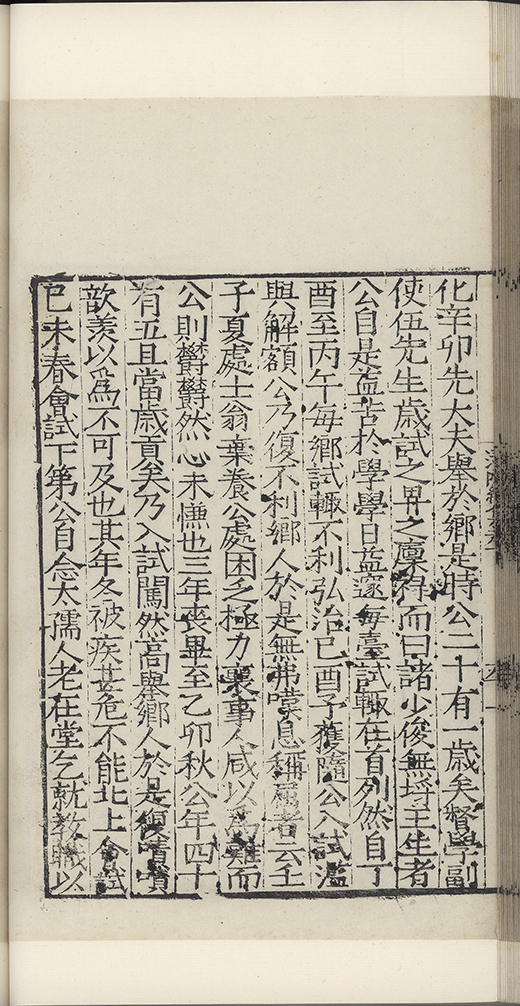 化辛卯先大夫舉於鄉是時公二十有一歲矣督學副
使伍先生歲試之畀之廩得而曰諸少俊無埒王生者
公自是益苦於學學日益邃每臺試輒在首列然自丁
酉至丙午每鄉試輒不利弘治己酉予獲隨公入試濫
與解額公乃復不利鄉人於是無弗嘆息稱屈者云壬
子夏處士翁棄養公處困乏極力襄事人咸以為難而
公則欝欝然心未慊也三年喪畢至乙卯秋公年四十
有五且當歲貢矣乃入試闈然高舉鄉人於是復嘖嘖
歆羨以爲不可及也其年冬被疾甚危不能北上會試
己未春會試下第公自念太孺人老在堂乞就教職以